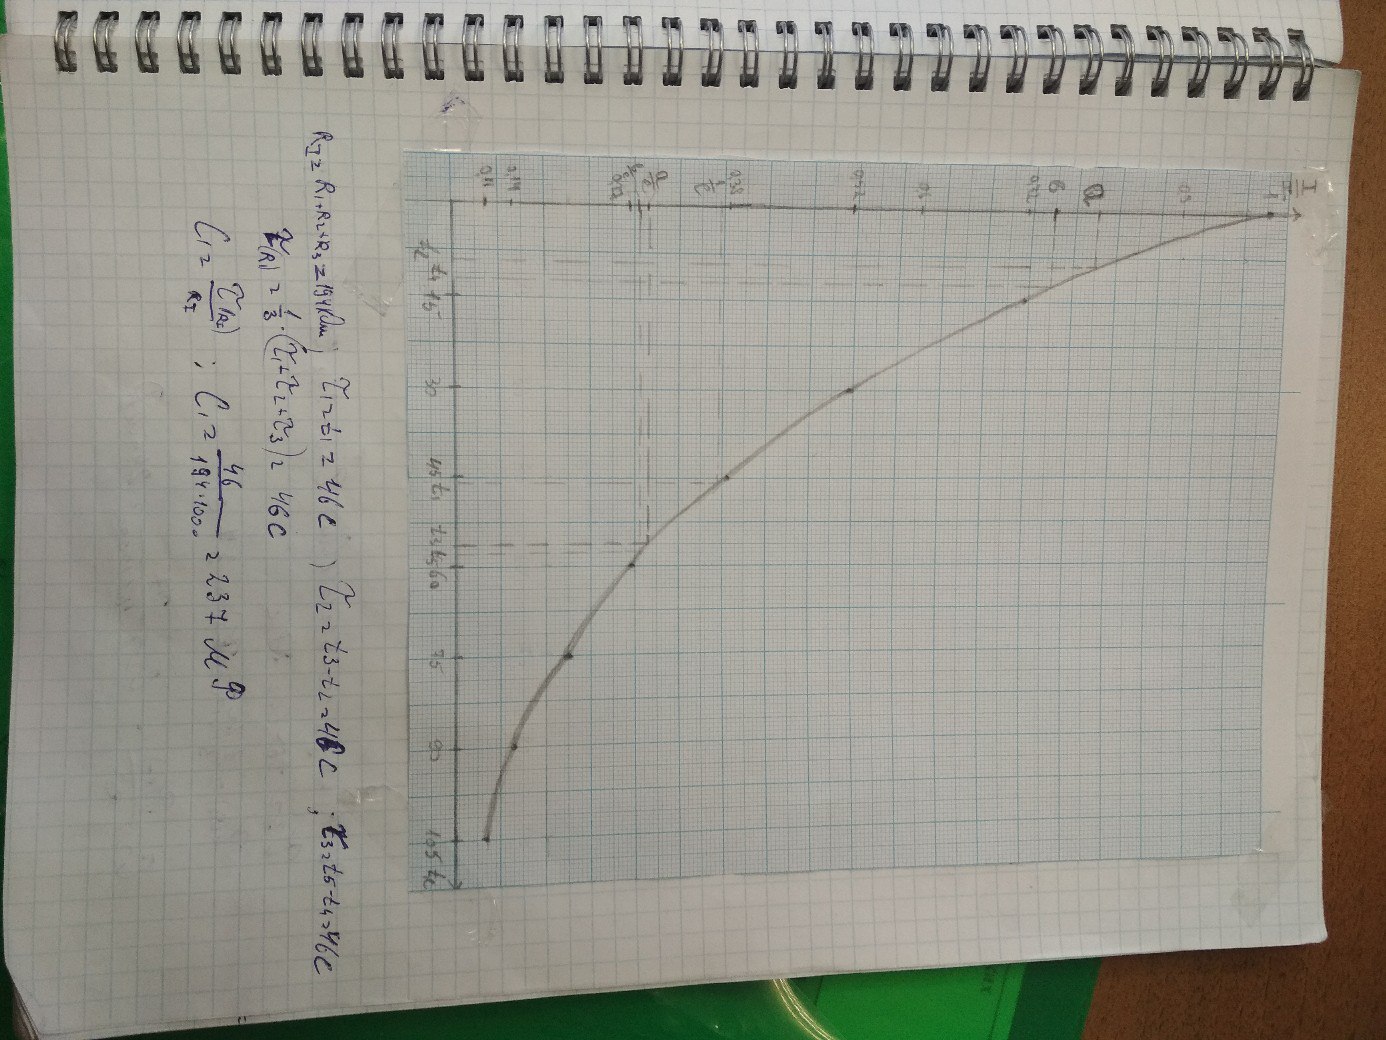 I
1
0,9
a
б
0,72
0,6
0,52
0,38
1/e
a/e
0,14
0,11
t₂ t₄ 15 30 45 t₁ t₃ t₅ 60 75 90 105 t,c
R_I = R₁+R₂+R₃ = 194 кОм ; τ₁ = t₁ = 46 с ; τ₂ = t₃ - t₂ = 46 с ; τ₃ = t₅ - t₄ = 46 с
τ(R_I) = 1/3 · (τ₁+τ₂+τ₃) = 46 с
C₁ = τ(R_I)/R_I ; C₁ = 46/194·1000 = 237 мФ